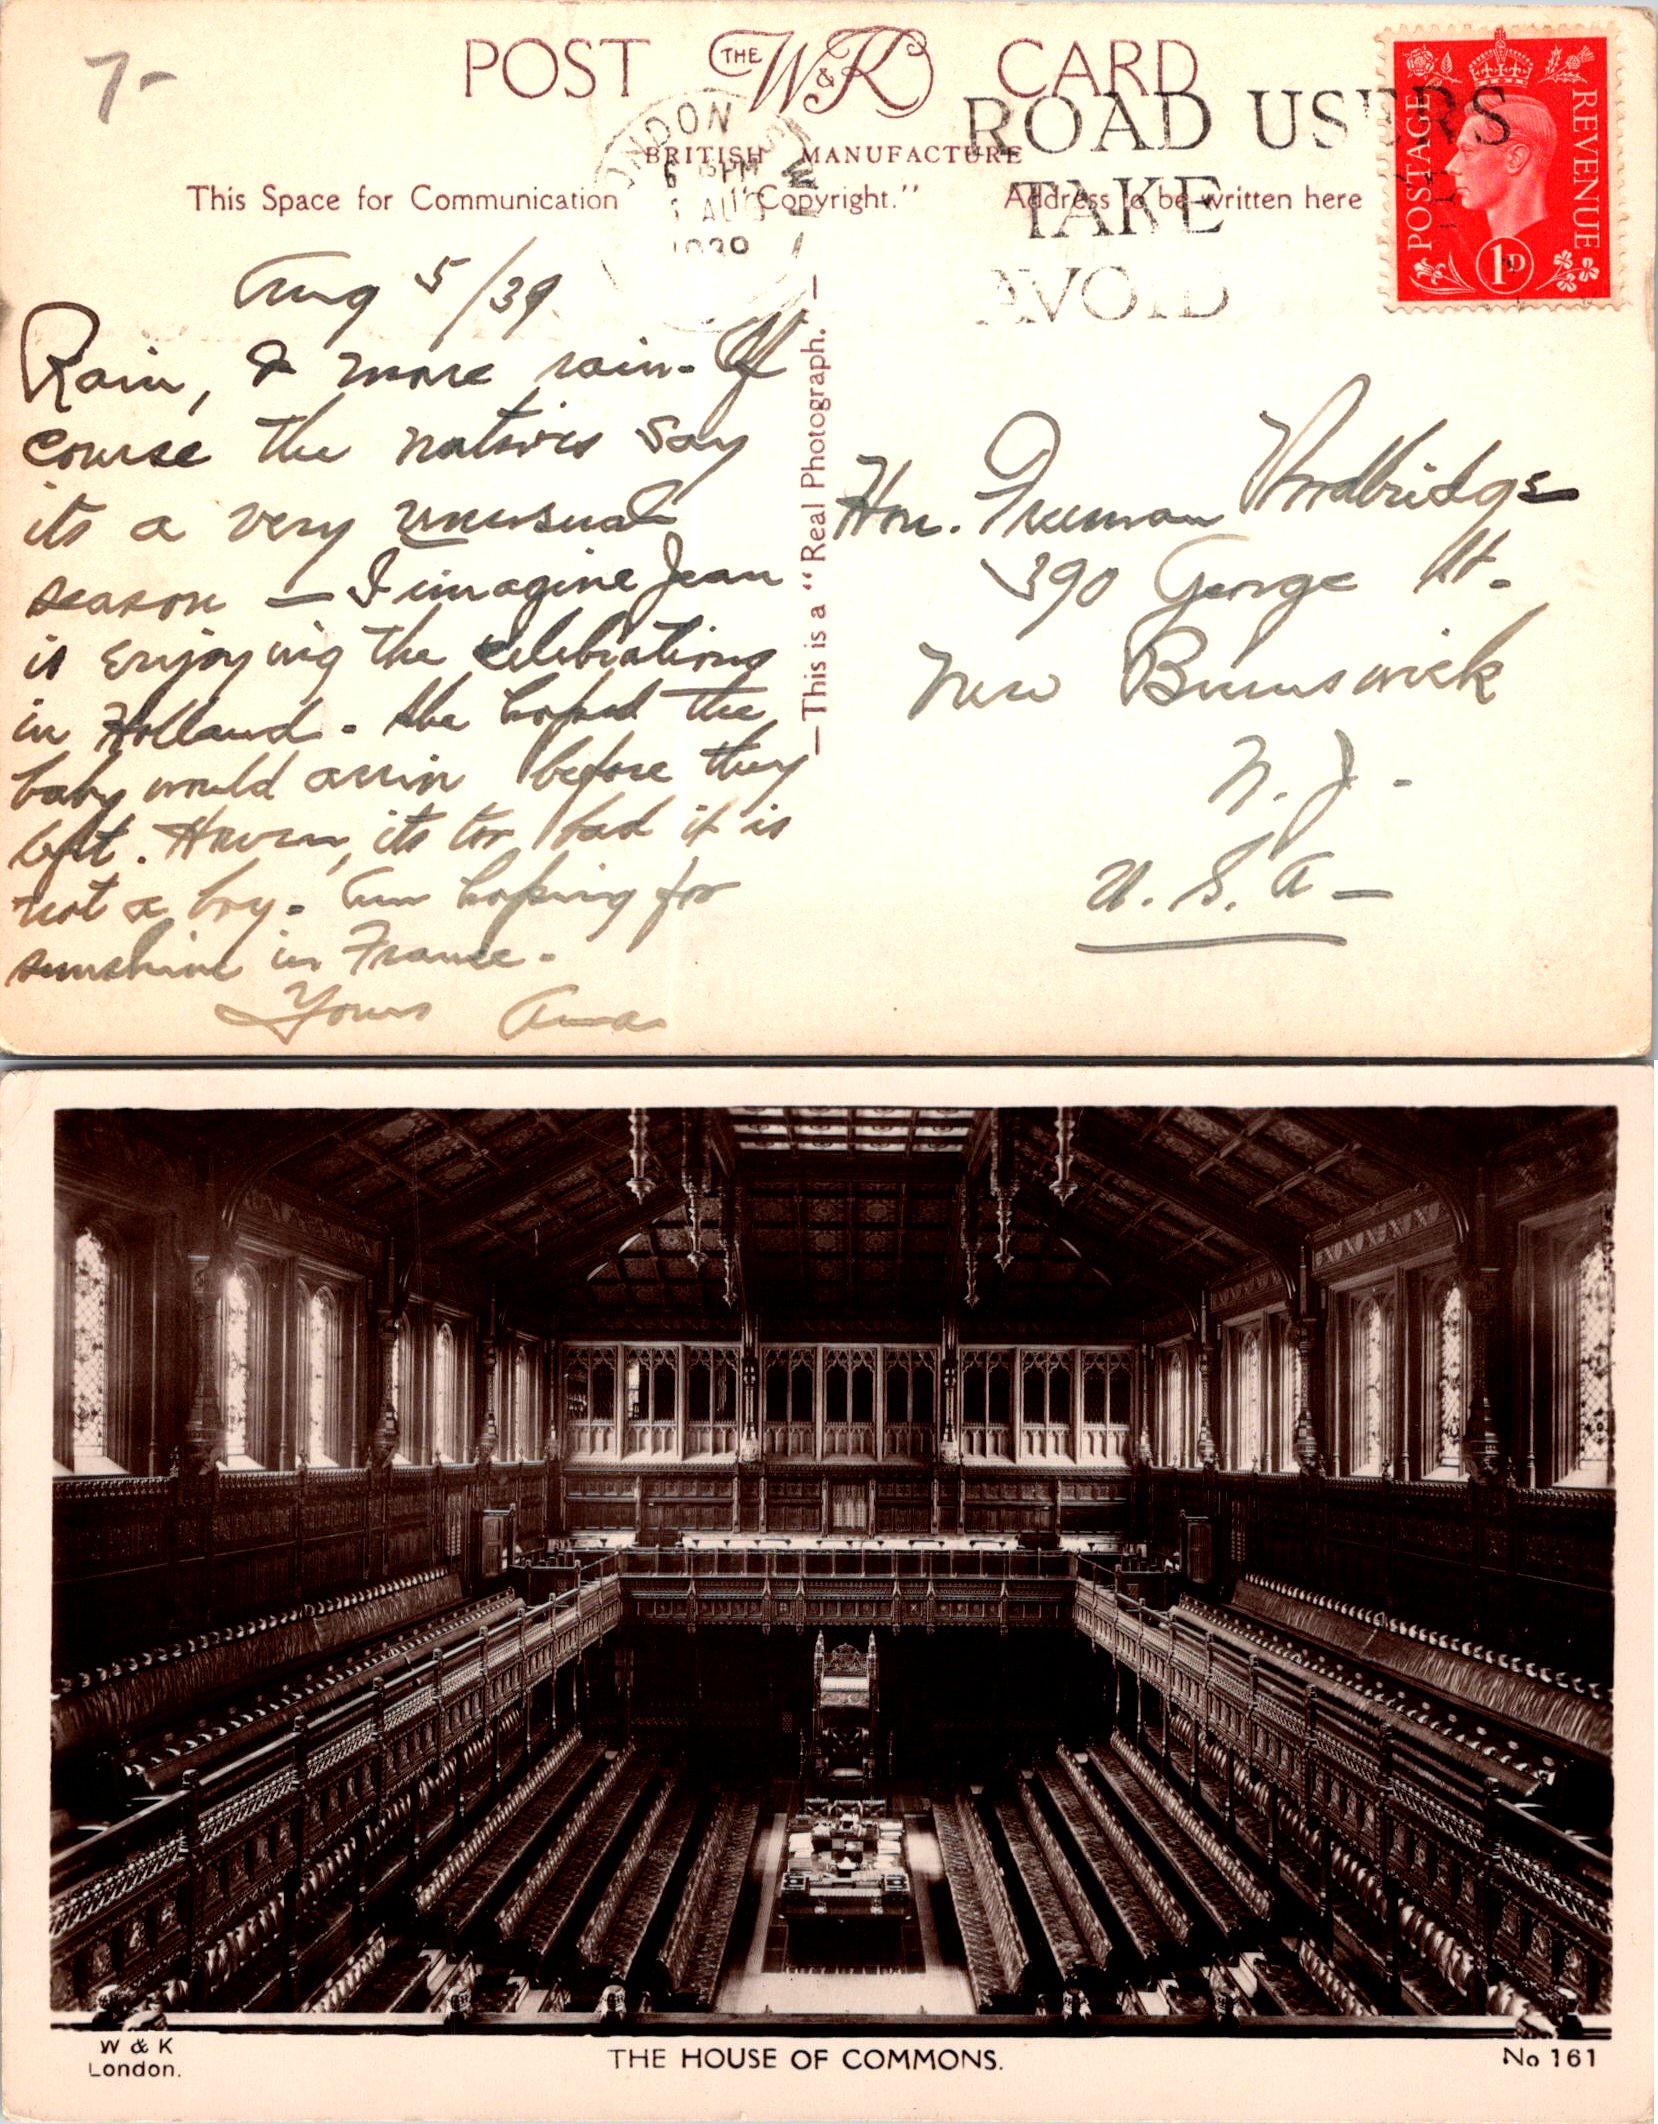 7-
POST THE W&K CARD
BRITISH MANUFACTURE
This Space for Communication "Copyright." Address to be written here
LONDON
6 PM
AUG
1939
ROAD USERS
TAKE
AVOID
POSTAGE REVENUE
1D
— This is a "Real Photograph." —
Aug 5/39
Rain, & more rain. Of
course the natives say
its a very unusual
season — I imagine Jean
is enjoying the celebrations
in Holland. She hoped the
baby would arrive before they
left. However, its too bad it is
not a boy. Am hoping for
sunshine in France.
Yours Anna
Hon. Freeman Woodbridge
390 George St.
New Brunswick
N. J.
U. S. A —
W & K
London.
THE HOUSE OF COMMONS.
No 161